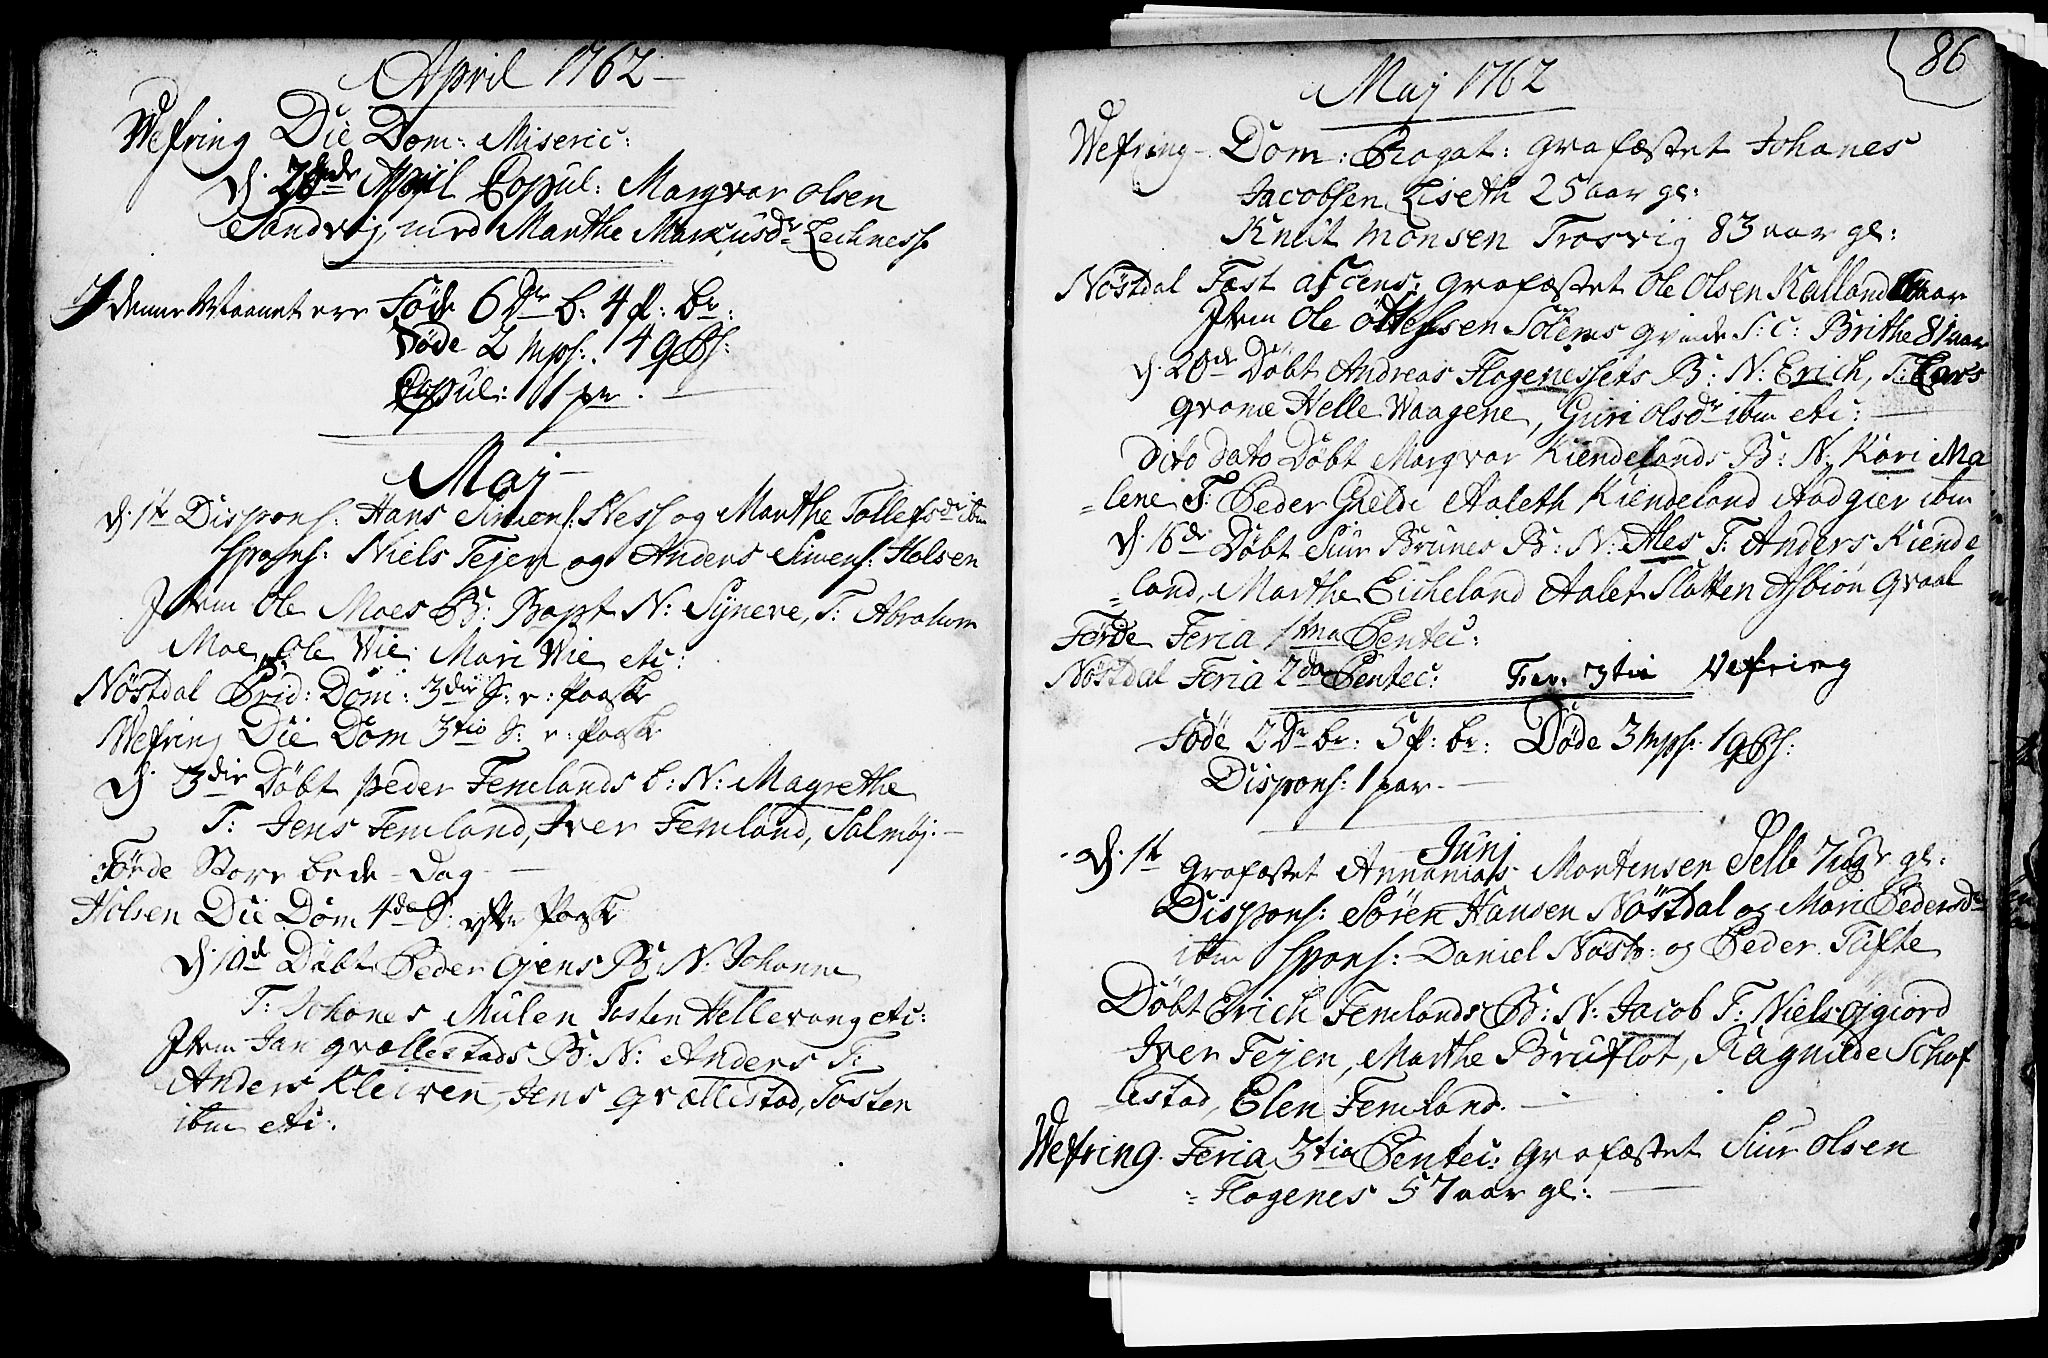 April 1762
Wefring Die Dom: Miseric:
d. April Copul: Margvar Olsen
Sandvig med Marthe Markusdr Leknesss
I denne Maanet ere Föde 6 Dr b: 4 p: br:
Döde 2 mps: 4 qps:
Copul: 1 par.
Maj
d. 1te Dispons: Hans Simens: Ness og Marthe Tollefsdr ibm
spons: Niels Tejen og Anders Simens: Holsen
Item Ole Moes B: Bapt N: Syneve, T: Abraham
Moe, Ole Wie Mari Wie etc:
Nöstdal Prid: Dom: 3die S: e: Paaske
Wefring Die Dom 3tia S: e: Paaske
d. 3die Döbt Peder Femlands b: N: Magrethe
T: Jens Femland, Iver Femland, Salmöj:
Förde Store bede-Dag
Holsen Die Dom 4de S: efter Paaske
d. 10de Döbt Peder Öjens B: N: Johanne
T: Johanes Mülen Tosten Hellevang etc:
Item Jan Grællestads B: N: Anders T:
Anders Kleiven, Jens Grællestad, Tosten
ibm etc:
86
Maj 1762
Wefring Dom: Rogat: grafæstet Johanes
Jacobsen Liseth 25 aar gl:
Knut Monsen Trosvig 83 aar gl:
Nöstdal Fest ascens: grafæstet Ole Olsen Kalland aar
Item Ole Solems qvinde S: C: Brithe 81 aar
d. 20de Döbt Andreas Hogenessets B: N: Erich, T: Lars
Grane Helle Waagene, Guri Olsdr ibm etc:
Dito Dato Döbt Margvar Kiendelands B: N: Kari Ma
lene T: Peder Gjelde Aaleth Kiendeland Aadgier ibm
d. 16de Döbt Siur Brunes B: N: Ales T: Anders Kiende
land, Marthe Eicheland Aalet Slatten Asbiön Graal
Förde Feria 1ma Pentec:
Nöstdal Feria 2da Pentec: Fer: 3tia Vefring
Föde 2 Dr br: 5 p: br: Döde 3 mps: 1 qps:
Dispons: 1 par.
Junj
d. 1te grafæstet Annanias Mortensen Selb 7 uger gl:
Dispons: Sören Hansen Nöstdal og Mari Pedersdr
ibm spons: Daniel Nöstd: og Peder Tüfte
Döbt Erich Femlands B: N: Jacob T: Niels Öjgiord
Iver Tejen, Marthe Bruflot, Ragnilde Schaf
lestad, Elen Femland.
Wefring Feria 3tia Pentec: grafæstet Siur Olsen
Hogenes 57 aar gl: